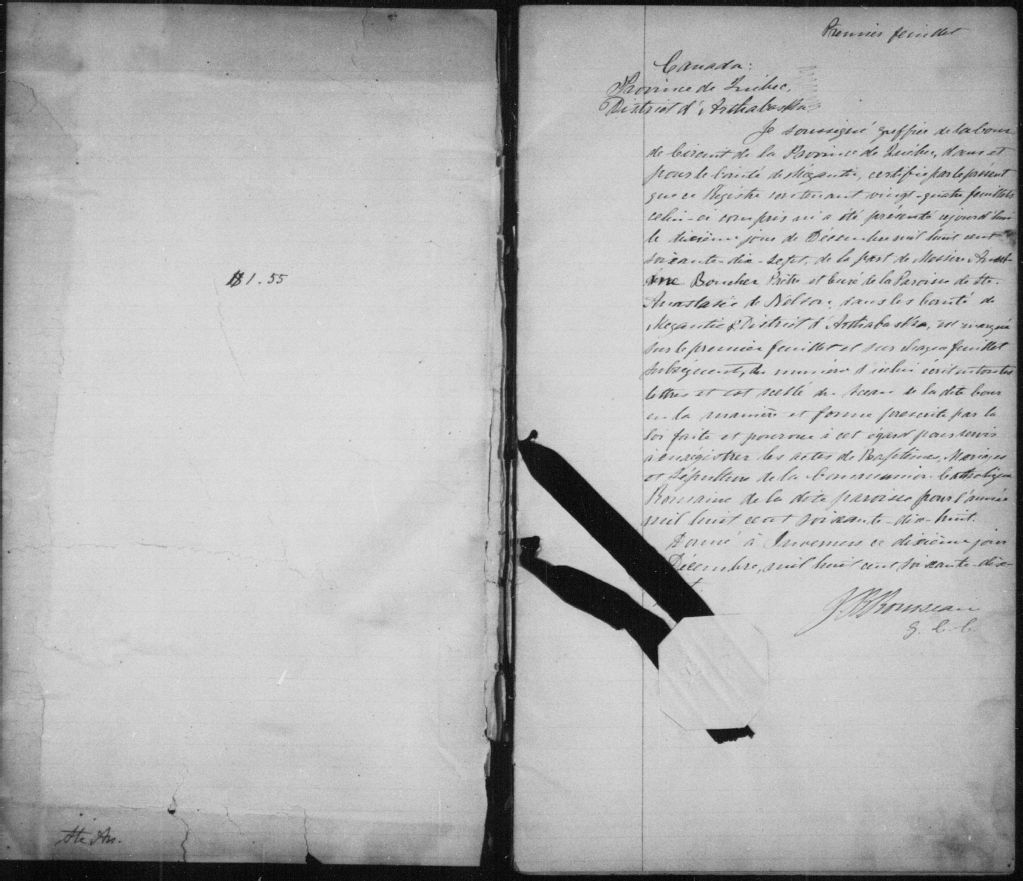 $1.55
Ste An.
Premier feuillet
Canada:
Province de Québec,
District d'Arthabaska
Je soussigné greffier de la Cour
de Circuit de la Province de Québec, dans et
pour le Comté de Mégantic, certifie par le présent
que ce Registre contenant vingt-quatre feuillets
celui-ci compris m'a été présenté aujourd'hui
le dixième jour de Décembre mil huit cent
soixante-dix-sept, de la part de Messire
Boucher Prêtre et Curé de la Paroisse de Ste-
Anastasie de Nelson, dans le Comté de
Mégantic & District d'Arthabaska, est marqué
sur le premier feuillet et sur chaque feuillet
subséquent, du numéro d'icelui écrit en toutes
lettres et est scellé du sceau de la dite Cour
en la manière et forme prescrite par la
loi faite et pourvue à cet égard pour servir
à enregistrer les actes de Baptêmes, Mariages
et Sépulture de la Communion Catholique
Romaine de la dite paroisse pour l'année
mil huit cent soixante-dix-huit.
Donné à Inverness ce dixième jour
Décembre, mil huit cent soixante-dix-
Rousseau
G. C. C.